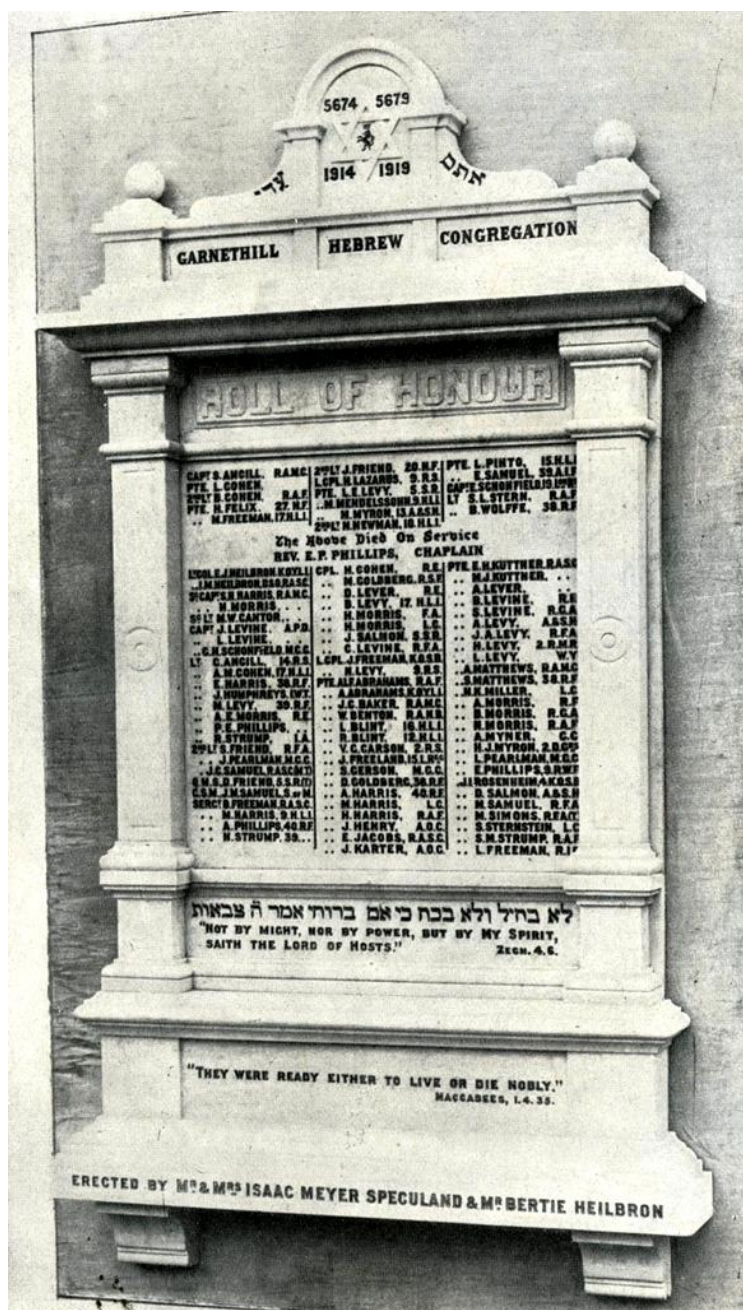 5674 5679
1914 1919
אתם עדי
GARNETHILL HEBREW CONGREGATION
ROLL OF HONOUR
CAPT S. ANGILL, R.A.M.C.
PTE L. COHEN.
2ND LT B. COHEN, R.A.F.
PTE. H. FELIX, 27. N.F.
.. M. FREEMAN, 17. H.L.I.
2ND LT J. FRIEND, 20. N.F.
L.CPL. H. LAZARUS, 9. R.S.
PTE. L.E. LEVY, 5. S.R.
.. M. MENDELSSOHN, 9. H.L.I.
.. M. MYRON, 13. A.&S.H.
2ND LT H. NEWMAN, 18. H.L.I.
PTE. L. PINTO, 15. H.L.I.
.. E. SAMUEL, 39. A.I.F.
CAPT E. SCHONFIELD, 19.
LT S.L. STERN, R.A.F.
.. B. WOLFFE, 38. R.F.
The Above Died On Service
REV. E.P. PHILLIPS, CHAPLAIN
LT COL E.J. HEILBRON, K.O.Y.L.I.
.. I.M. HEILBRON, D.S.O. R.A.S.C.
CAPT S.H. HARRIS, R.A.M.C.
.. N. MORRIS, ..
M.W. CANTOR, ..
CAPT J. LEVINE, A.P.D.
.. L. LEVINE, ..
.. G.H. SCHONFIELD, M.G.C.
LT C. ANGILL, 14. R.S.
.. A.M. COHEN, 17. H.L.I.
.. E. HARRIS, 38. R.F.
.. J. HUMPHREYS, I.W.T.
.. M. LEVY, 39. R.F.
.. A.E. MORRIS, R.E.
.. P.E. PHILLIPS, ..
.. R. STRUMP, I.A.
2ND LT S. FRIEND, R.F.A.
.. J. PEARLMAN, M.G.C.
.. J.G. SAMUEL, R.A.S.C.(M.T)
Q.M.S. D. FRIEND, 5. S.R.(T)
C.S.M. J.M. SAMUEL, S. OF M.
SERGT D. FREEMAN, R.A.S.C.
.. M. HARRIS, 9. H.L.I.
.. A. PHILLIPS, 40. R.F.
.. N. STRUMP, 39 ...
CPL. H. COHEN, R.E.
.. M. GOLDBERG, R.S.F.
.. D. LEVER, R.E.
.. B. LEVY, 17. H.L.I.
.. H. MORRIS, F.A.
.. H. MORRIS, ..
.. J. SALMON, 5. S.R.
.. C. LEVINE, R.F.A.
L.CPL. J. FREEMAN, K.O.S.B.
.. H. LEVY, 5. S.R.
PTE. ALF. ABRAHAMS, R.A.F.
.. A. ABRAHAMS, K.O.Y.L.I.
.. J.C. BAKER, R.A.M.C.
.. W. BENTON, R.A.M.C.
.. L. BLINT, 16. H.L.I.
.. R. BLINT, 12. H.L.I.
.. V.C. CARSON, 2. R.S.
.. J. FREELAND, 15.
.. S. GERSON, M.G.C.
.. D. GOLDBERG, 38. R.F.
.. A. HARRIS, 40. R.F.
.. M. HARRIS, L.C.
.. H. HARRIS, R.A.F.
.. J. HENRY, A.O.C.
.. E. JACOBS, R.A.S.C.
.. J. KARTER, A.O.C.
PTE E.H. KUTTNER, R.A.S.C.
.. M.J. KUTTNER, ..
.. A. LEVER, ..
.. B. LEVINE, R.E.
.. B. LEVINE, R.G.A.
.. A. LEVY, A.&S.H.
.. J.A. LEVY, R.F.A.
.. H. LEVY, 2. R.M.R.
.. L. LEVY, W.Y.
.. A. MATTHEWS, R.A.M.C.
.. S. MATTHEWS, 38. R.F.
.. H.K. MILLER, L.C.
.. A. MORRIS, R.F.
.. B. MORRIS, R.G.A.
.. R. MORRIS, R.A.F.
.. A. MYNER, G.G.
.. H.J. MYRON, 2. D.GDS
.. L. PEARLMAN, M.G.C.
.. E. PHILLIPS, 9. R.W.F.
.. J.I. ROSENHEIM, 4. K.O.S.B.
.. D. SALMON, A.&S.H.
.. M. SAMUEL, R.F.A.
.. M. SIMONS, R.E.A.(T)
.. S. STERNSTEIN, L.C.
.. S.M. STRUMP, R.A.F.
.. L. FREEMAN, R.I.F
לא בחיל ולא בכח כי אם ברוחי אמר ה' צבאות
"NOT BY MIGHT, NOR BY POWER, BUT BY MY SPIRIT,
SAITH THE LORD OF HOSTS." ZECH. 4.6.
"THEY WERE READY EITHER TO LIVE OR DIE NOBLY."
MACCABEES, I. 4. 35.
ERECTED BY MR & MRS ISAAC MEYER SPECULAND & MR BERTIE HEILBRON